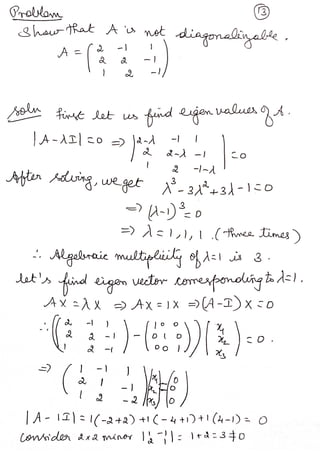 Problem (13)
Show that A is not diagonalizable.
A = ( 2 -1 1
2 2 -1
1 2 -1 )
Soln First let us find eigen values of A.
|A-λI| = 0 ⇒ | 2-λ -1 1
2 2-λ -1
1 2 -1-λ | = 0
After solving, we get λ³ - 3λ² + 3λ - 1 = 0
⇒ (λ-1)³ = 0
⇒ λ = 1, 1, 1. (three times)
∴ Algebraic multiplicity of λ=1 is 3.
let's find eigen vector corresponding to λ=1.
AX = λX ⇒ AX = 1X ⇒ (A-I)X = 0
∴ ( ( 2 -1 1
2 2 -1
1 2 -1 ) - ( 1 0 0
0 1 0
0 0 1 ) ) ( x₁
x₂
x₃ ) = 0.
⇒ ( 1 -1 1
2 1 -1
1 2 -2 ) ( x₁
x₂
x₃ ) = ( 0
0
0 )
|A - 1I| = 1(-2+2) + 1(-4+1) + 1(4-1) = 0
Consider 2x2 minor | 1 -1
2 1 | = 1+2 = 3 ≠ 0